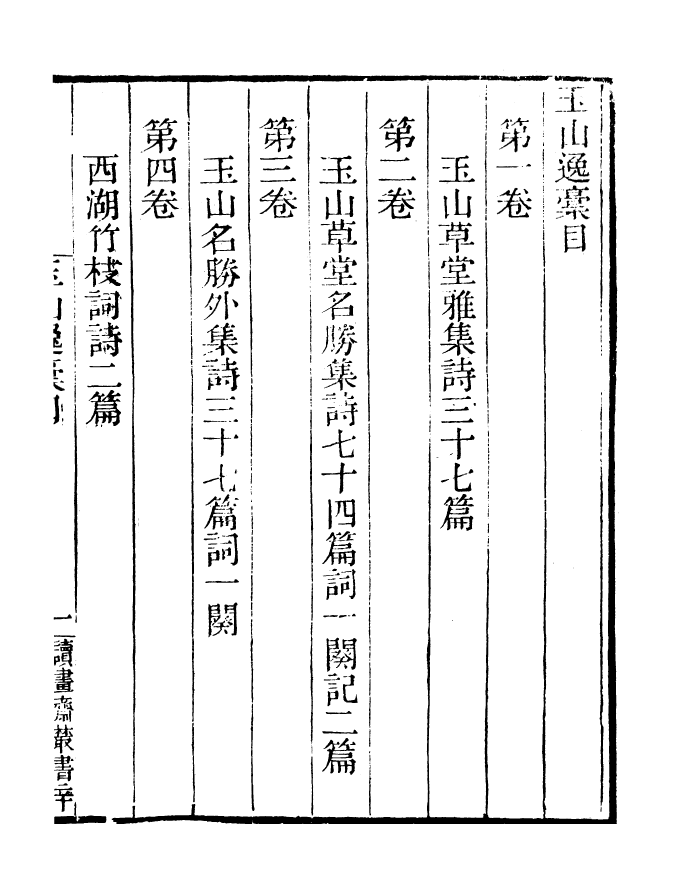 玉山逸稾目
第一卷
玉山草堂雅集詩三十七篇
第二卷
玉山草堂名勝集詩七十四篇詞一闋記二篇
第三卷
玉山名勝外集詩三十七篇詞一闋
第四卷
西湖竹枝詞詩二篇
玉山逸稾目
一
讀畫齋叢書辛